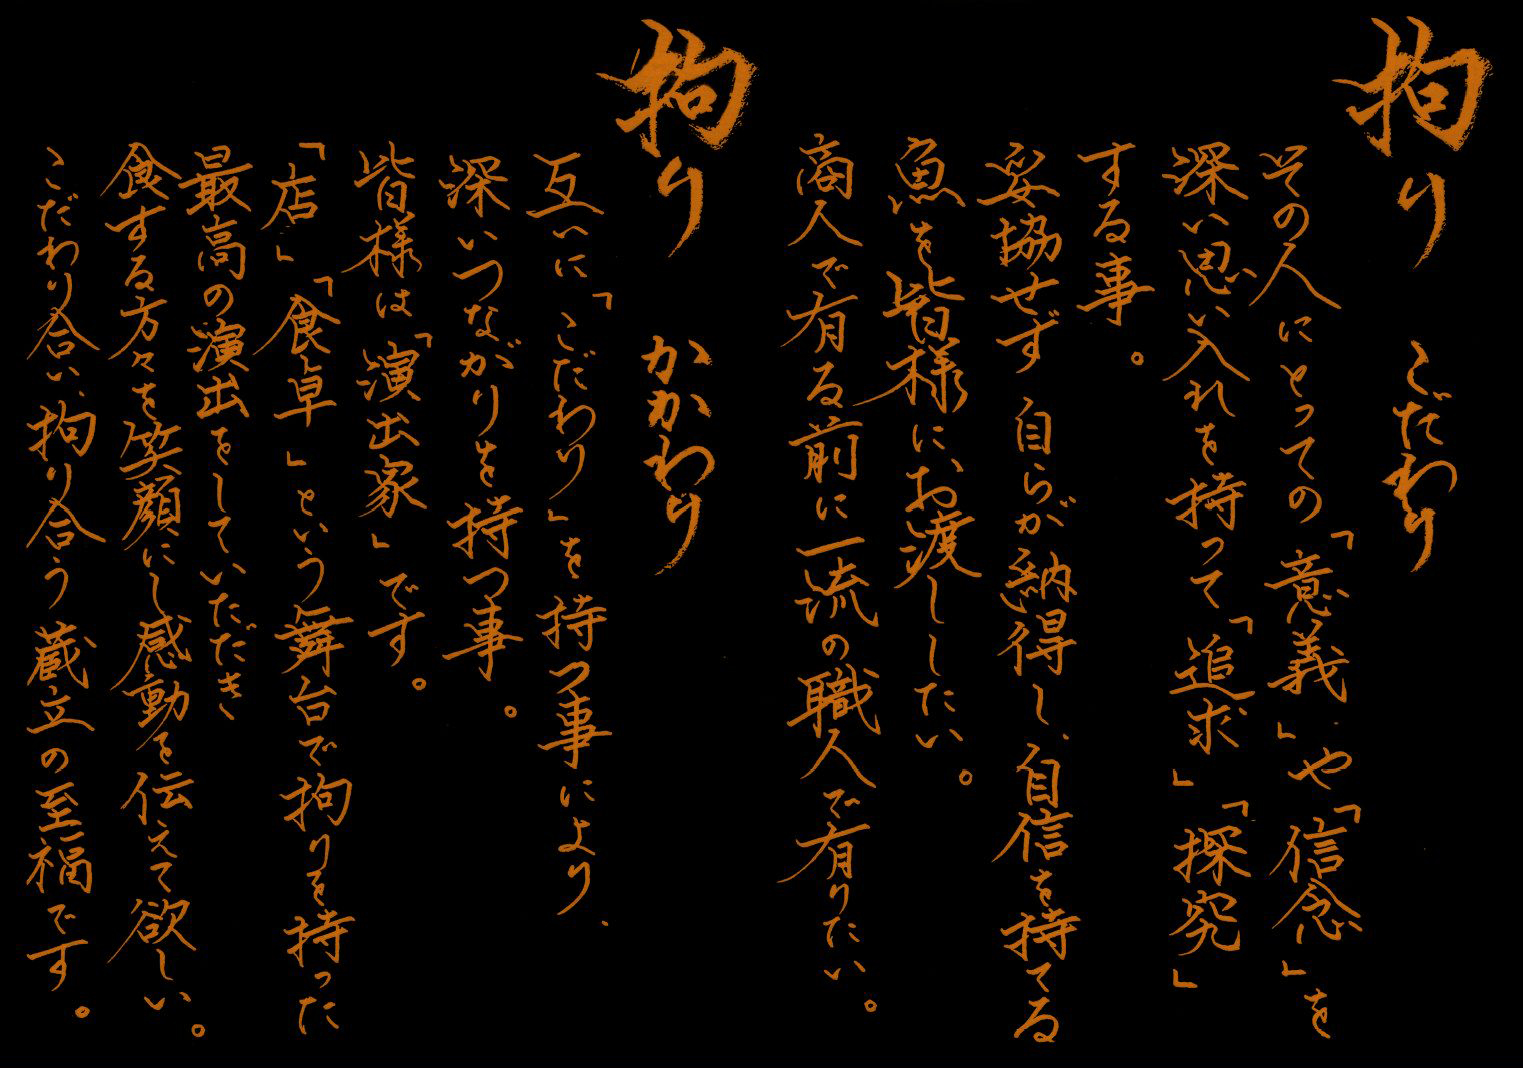 拘り こだわり
その人にとっての「意義」や「信念」を
深い思い入れを持って「追求」「探究」
する事。
妥協せず 自らが納得し、自信を持てる
魚を皆様に、お渡ししたい。
商人で有る前に一流の職人で有りたい。
拘り かかわり
互いに「こだわり」を持つ事により、
深いつながりを持つ事。
皆様は「演出家」です。
「店」「食卓」という舞台で拘りを持った
最高の演出をしていただき
食する方々を笑顔にし感動を伝えて欲しい。
こだわり合い、拘り合う 蔵立の至福です。